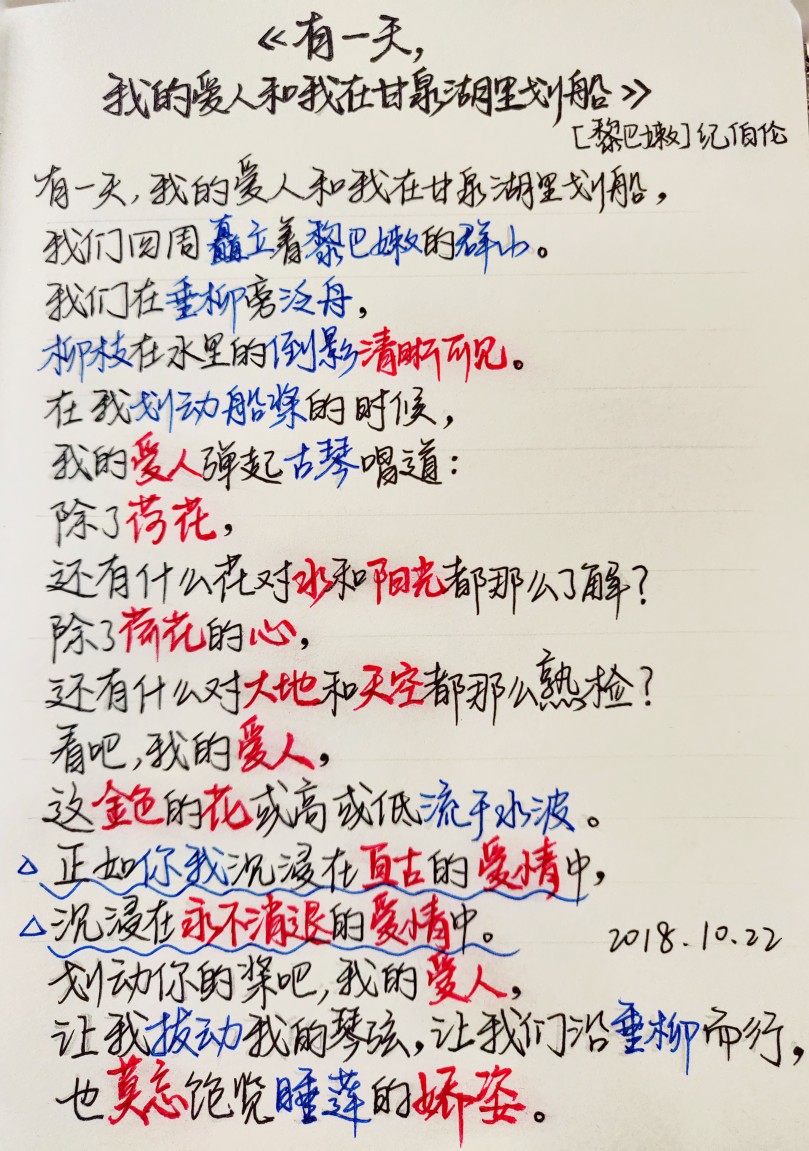 《有一天,
我的爱人和我在甘泉湖里划船》
[黎巴嫩]纪伯伦
有一天,我的爱人和我在甘泉湖里划船,
我们四周矗立着黎巴嫩的群山。
我们在垂柳旁泛舟,
柳枝在水里的倒影清晰可见。
在我划动船桨的时候,
我的爱人弹起古琴唱道:
除了荷花,
还有什么花对水和阳光都那么了解?
除了荷花的心,
还有什么对大地和天空都那么熟捡?
看吧,我的爱人,
这金色的花或高或低流于水波。
△正如你我沉浸在亘古的爱情中,
△沉浸在永不消退的爱情中。
2018.10.22
划动你的桨吧,我的爱人,
让我拨动我的琴弦,让我们沿垂柳而行,
也莫忘饱览睡莲的娇姿。